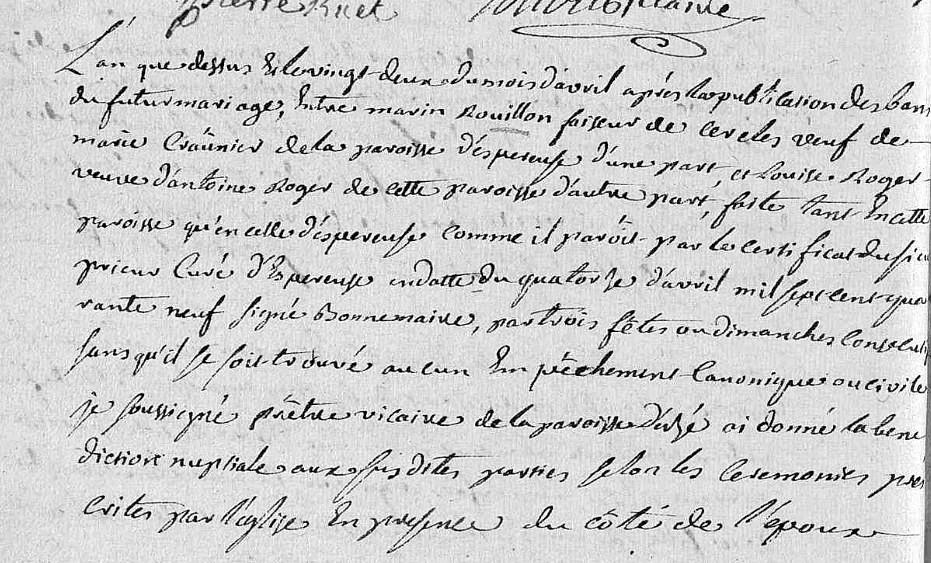 Pierre Ruet
L'an que dessus Et le vingt deux du mois d'avril après la publication des bans
du futur mariage, Entre marin Rouillon faiseur de cercles veuf de
marie Craûnier de la paroisse d'éspereuse d'une part, et Louise Roger
veuve d'antoine Roger de cette paroisse d'autre part, faite tant En cette
paroisse qu'en celle d'éspereuse comme il paroit par le certificat du sieu
prieur Curé d'Espereuse en datte du quatorze d'avril mil sept cent qua
rante neuf signé Bonnemaire, par trois fêtes ou dimanches consecuti
sans qu'il se soit trouvé aucun Empêchement Canonique ou civile
je soussigné prêtre vicaire de la paroisse ai donné la bene
diction nuptiale aux susdites parties selon les ceremonies pres
crites par l'église En presence du côté de l'époux